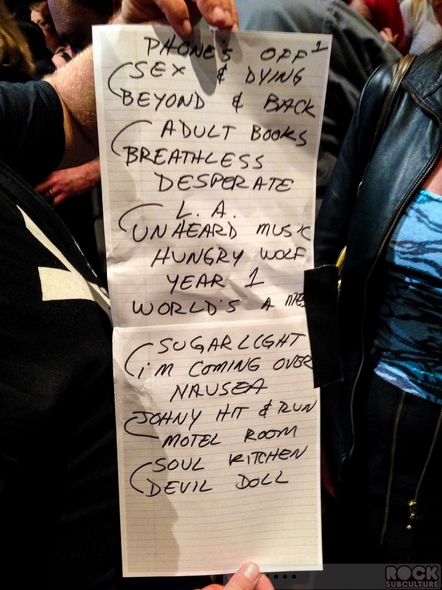 PHONE'S OFF 1
SEX & DYING
BEYOND & BACK
ADULT BOOKS
BREATHLESS
DESPERATE
L.A.
UNHEARD MUSIC
HUNGRY WOLF
YEAR 1
WORLD'S A MES
SUGARLIGHT
i'M COMING OVER
NAUSEA
JOHNY HIT & RUN
MOTEL ROOM
SOUL KITCHEN
DEVIL DOLL
ROCK
SUBCULTURE